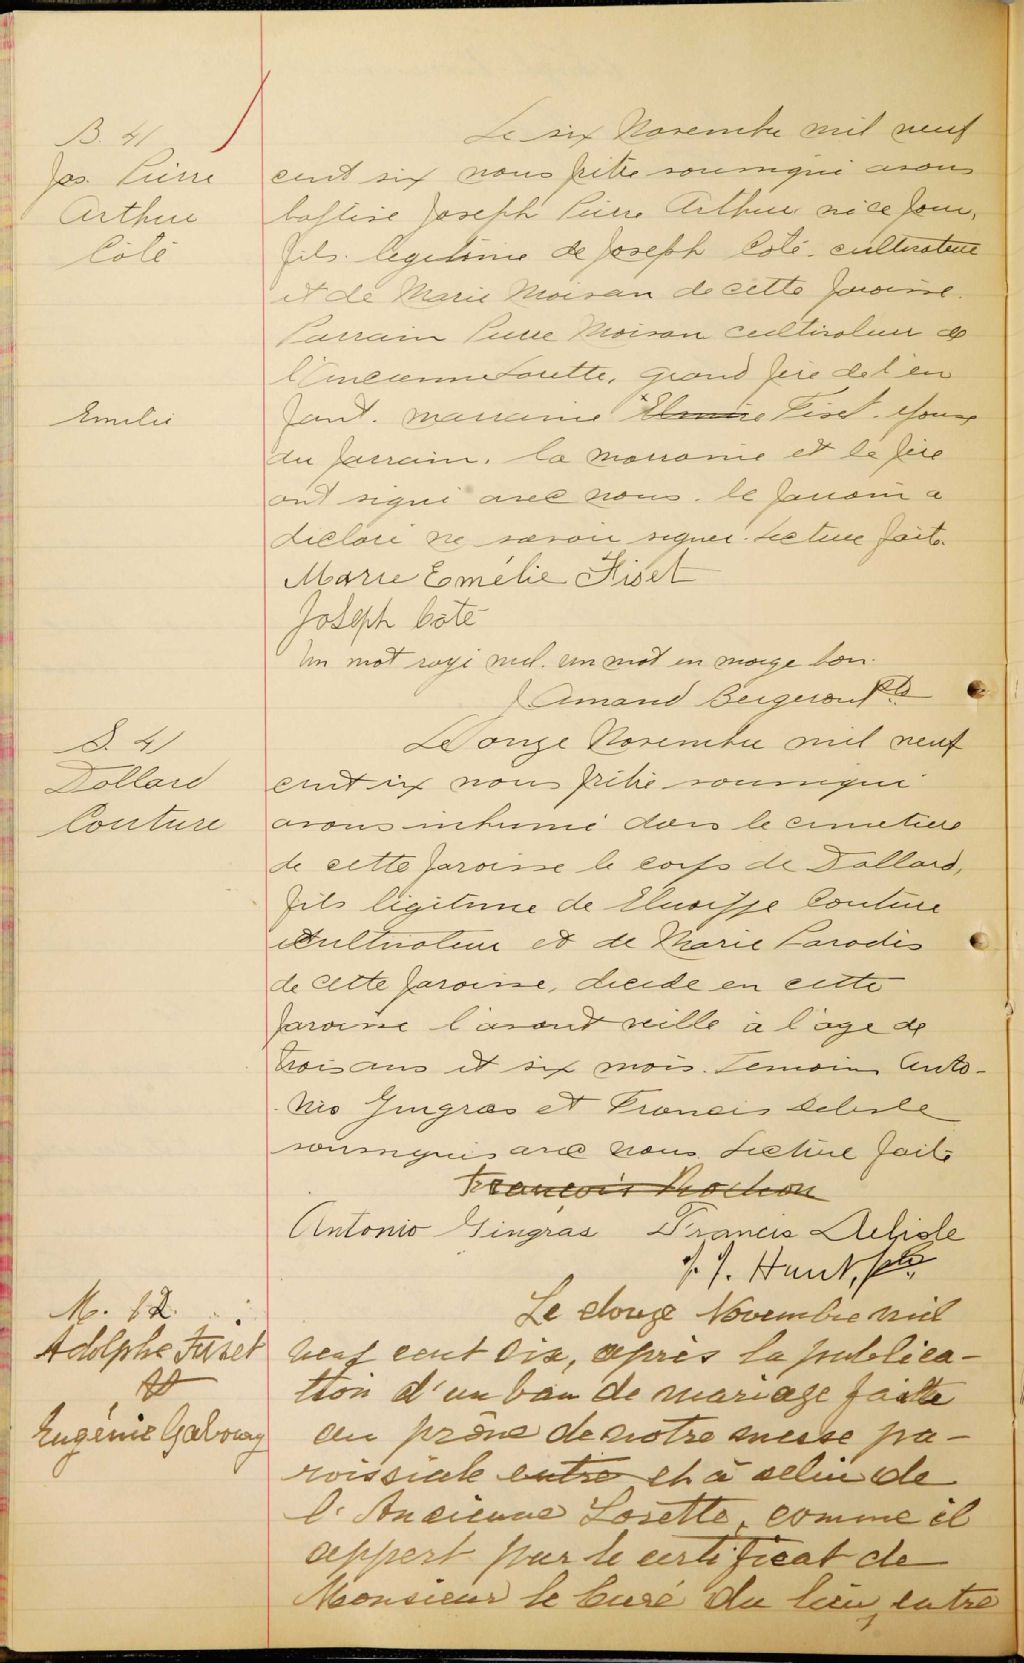 B. 41
Jos. Pierre
Arthur
Côté
Le six Novembre mil neuf
cent six nous prêtre soussigné avons
baptisé Joseph Pierre Arthur né ce jour,
fils légitime de Joseph Côté cultivateur
et de Marie Moisan de cette paroisse.
Parrain Pierre Moisan cultivateur de
l'Ancienne Lorette, grand père de l'en
Emelie
fant. marraine Elmire Fiset. épouse
du parrain. La marraine et le père
ont signé avec nous. le parrain a
déclaré ne savoir signer. Lecture faite.
Marie Emélie Fiset
Joseph Côté
Un mot rayé nul. un mot en marge bon.
J. Amand Bergeron Ptr
S. 41
Dollard
Couture
Le onze Novembre mil neuf
cent six nous prêtre soussigné
avons inhumé dans le cimetière
de cette paroisse le corps de Dollard,
fils légitime de Elzéar Couture
cultivateur et de Marie Paradis
de cette paroisse, décédé en cette
paroisse l'avant veille à l'age de
trois ans et six mois. Temoins Anto-
nio Gingras et Francis Delisle
soussignés avec nous. Lecture faite
François Rochon
Antonio Gingras Francis Delisle
J. J. Hunt, ptr.
M. 12.
Adolphe Fiset
&
Eugénie Gaboury
Le douze Novembre mil
neuf cent six, après la publica-
tion d'un ban de mariage faite
au prône de notre messe pa-
roissiale entre et à celui de
l'Ancienne Lorette, comme il
appert par le certificat de
Monsieur le Curé du lieu, entre